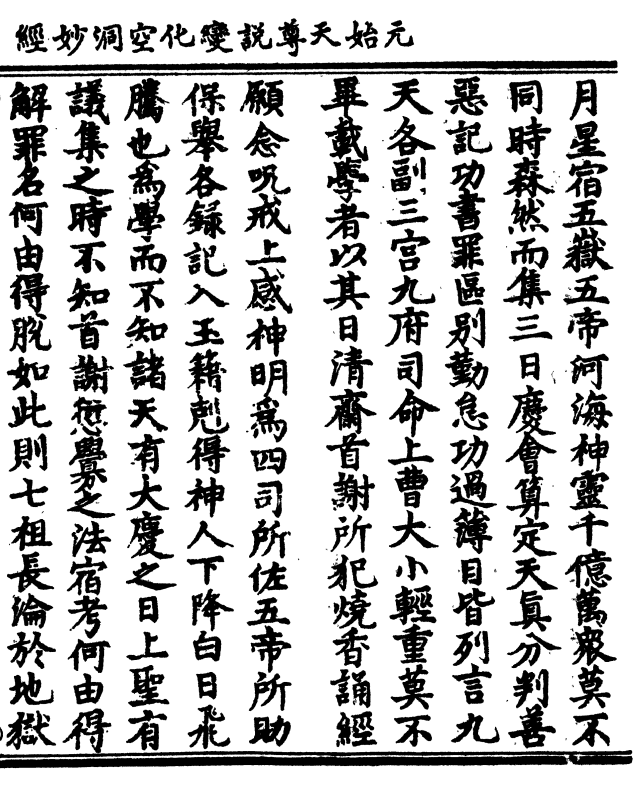 元始天尊説變化空洞妙經
月星宿五嶽五帝河海神靈千億萬衆莫不
同時森然而集三日慶會算定天眞分判善
惡記功書罪區别勤怠功過簿目皆列言九
天各副三宫九府司命上曹大小輕重莫不
畢載學者以其日清齋首謝所犯燒香誦經
願念呪戒上感神明爲四司所佐五帝所助
保舉各録記入玉籍剋得神人下降白日飛
騰也爲學而不知諸天有大慶之日上聖有
議集之時不知首謝愆釁之法宿考何由得
解罪名何由得脱如此則七祖長淪於地獄